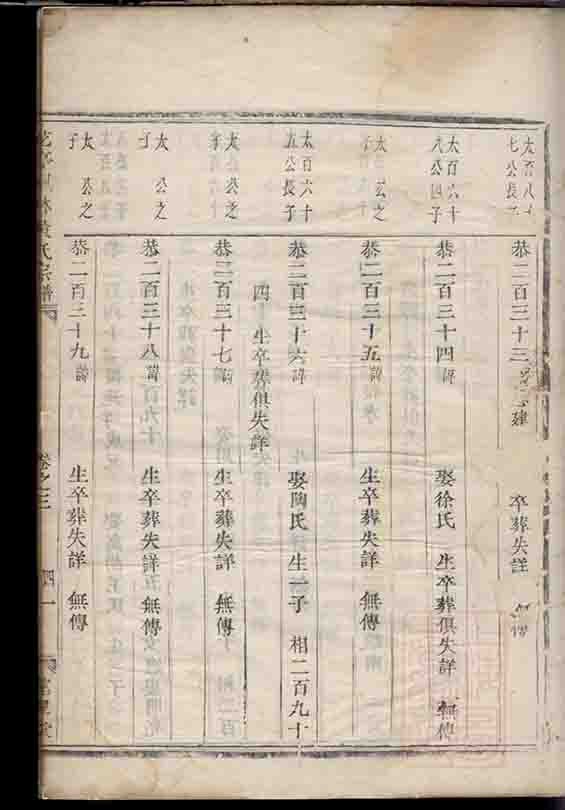 太百八十
七公長子
恭二百三十三 建
卒葬失詳
太百六十
八公四子
恭二百三十四 諱 娶徐氏 生卒葬俱失詳 無傳
太 公之
子
恭二百三十五 諱 生卒葬失詳 無傳
太百六十
五公長子
恭二百三十六 諱 娶陶氏 生一子 相二百九十
四 生卒葬俱失詳
太 公之
子
恭二百三十七 諱 生卒葬失詳 無傳
太 公之
子
恭二百三十八 諱 生卒葬失詳 無傳
太 公之
子
恭二百三十九 諱 生卒葬失詳 無傳
林黃氏宗譜 卷之三 四一